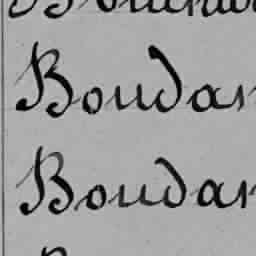 Boudar
Boudar